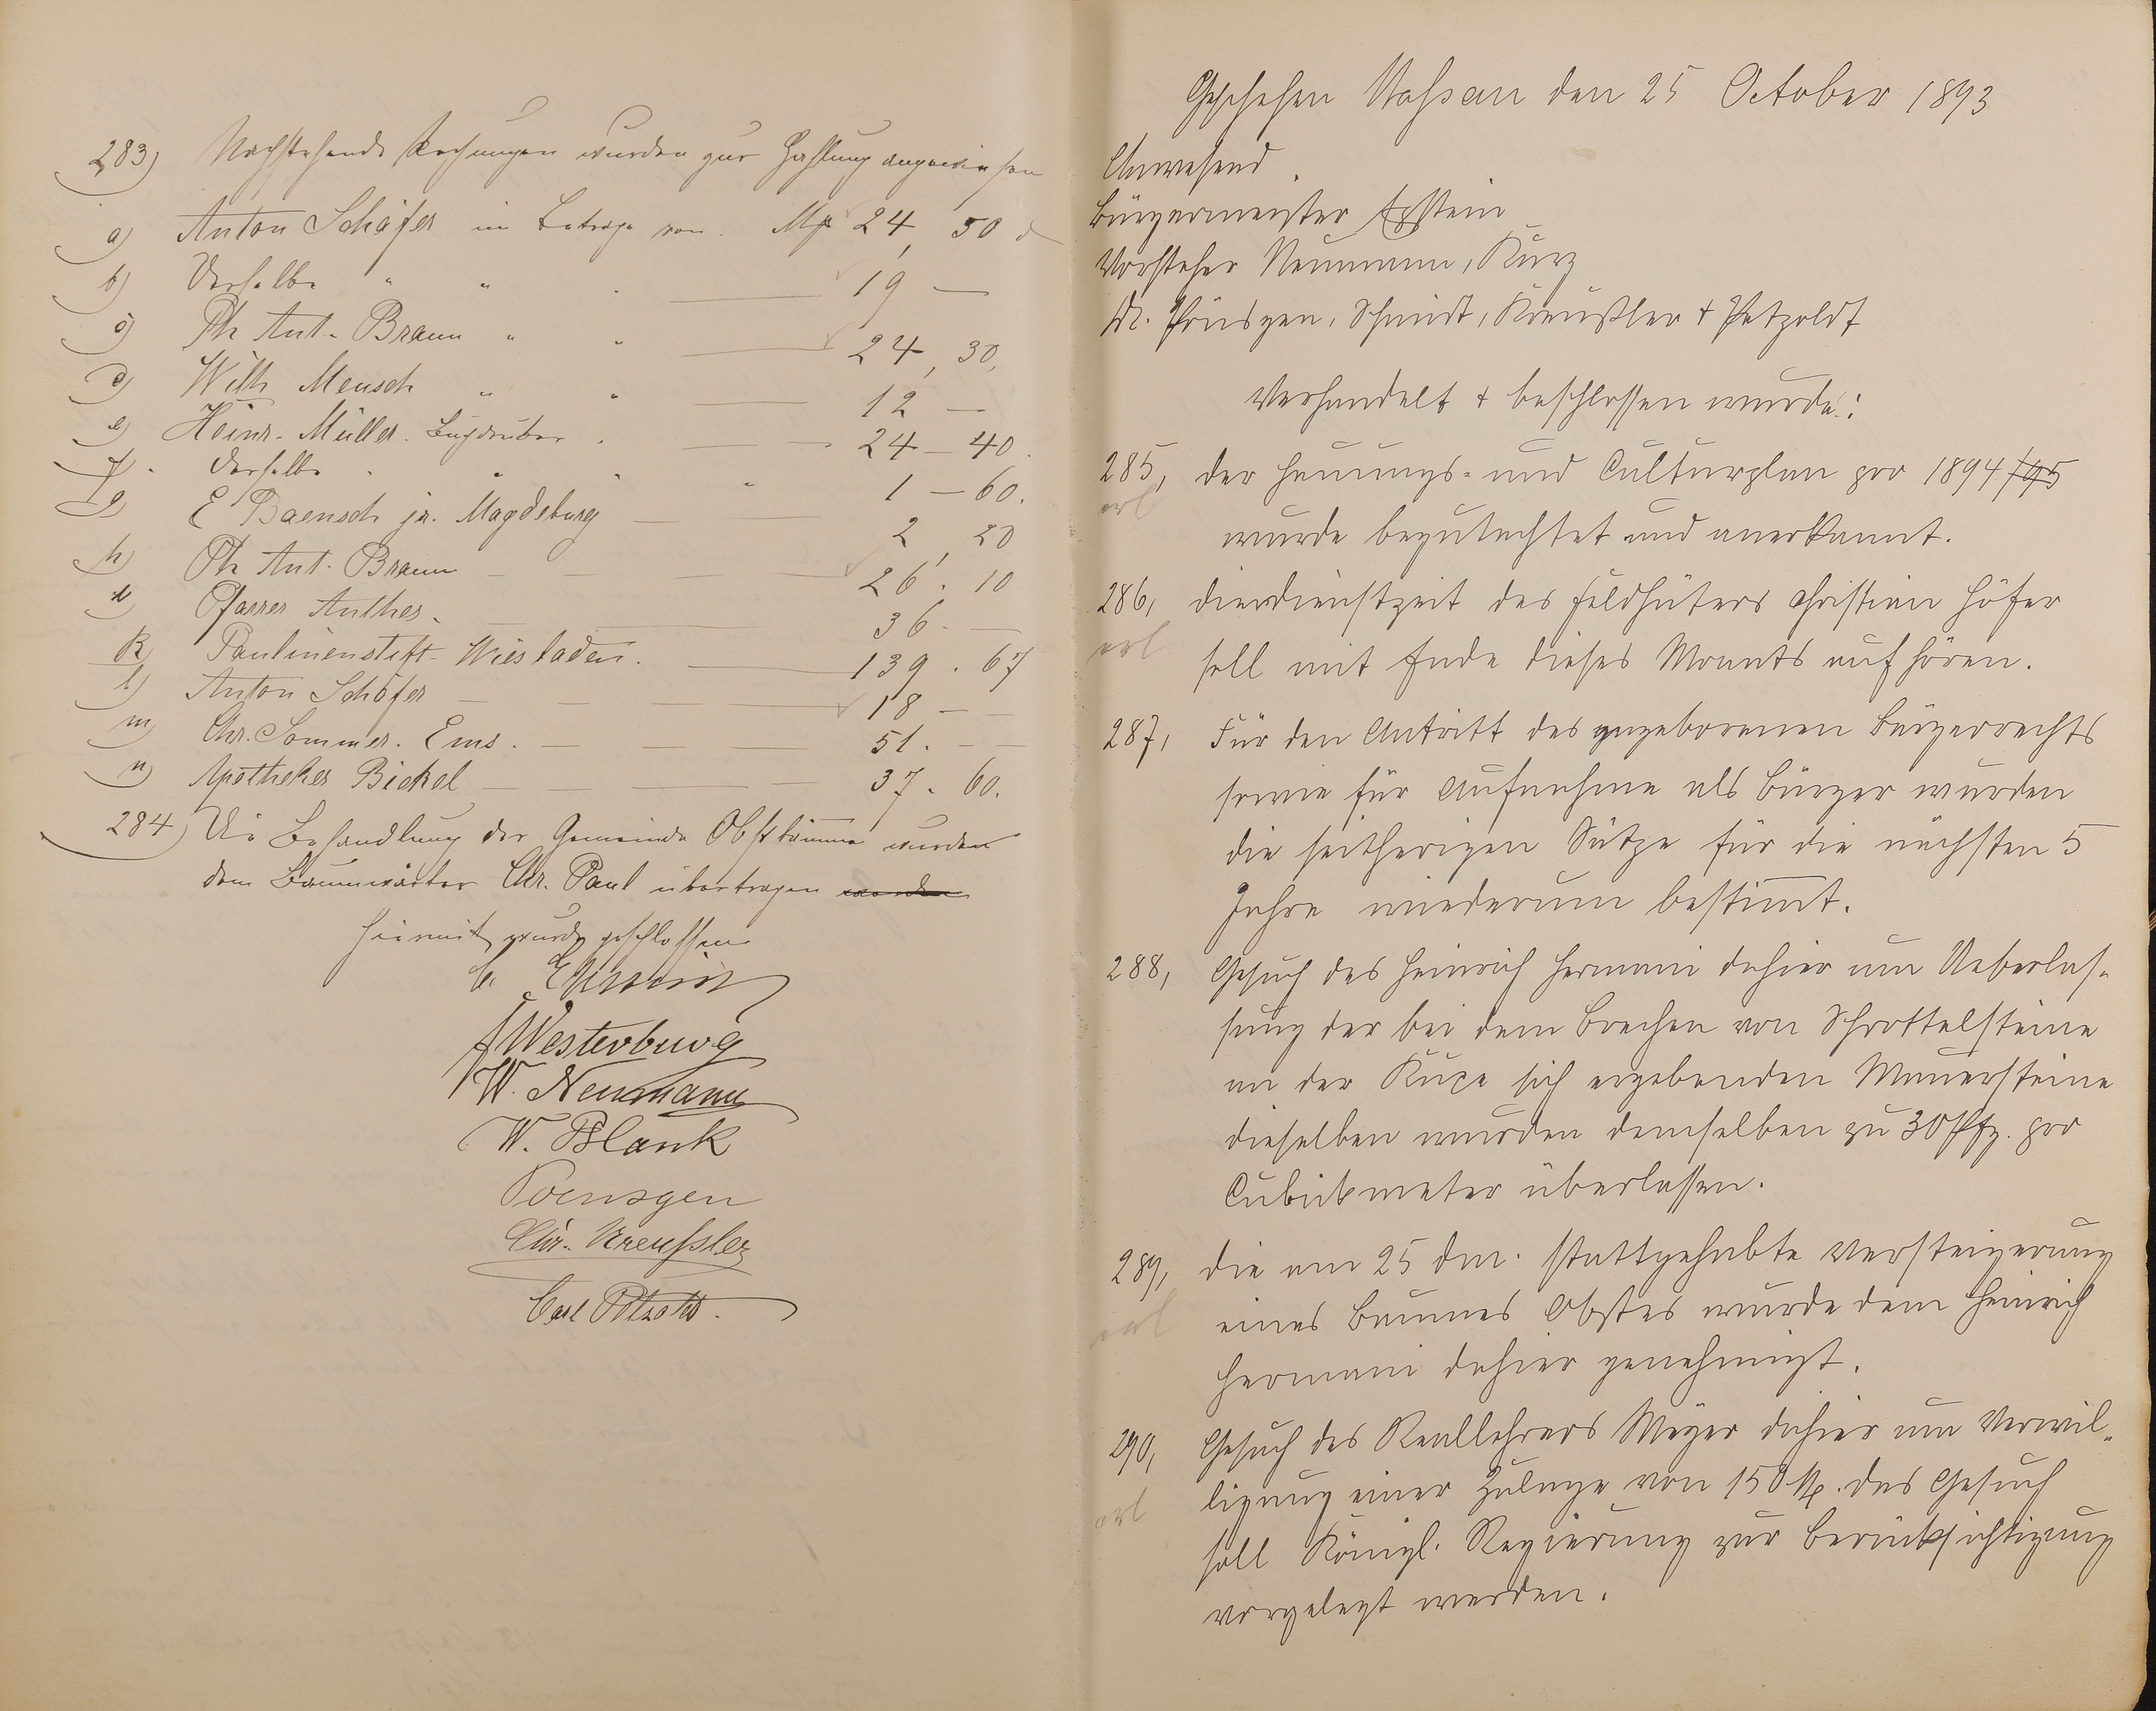 283) Nachstehende Rechnungen wurden zur Zahlung angewiesen
a) Anton Schäfer im Betrage von Mk 24, 50
b) Derselbe " " " 19 —
c) Ph Ant. Braun " " 24, 30,
d) Wilh Mensch " " 12 —
e) Heinr. Müller. Buchdrucker 24 — 40.
f. Derselbe " " " 1 — 60.
g) E Baensch jr. Magdeburg 2, 20
h) Ph Ant. Braun 26. 10
i) Pfarrer Anthes. 36. —
k) Paulinenstift Wiesbaden. 139. 67
l) Anton Schäfer 18 — —
m) Chr. Sommer. Ems. 51. — —
n) Apotheker Bickel 37. 60.
284) Die Behandlung der Gemeinde Obstbäume wurden
dem Baumwärter Chr. Paul übertragen worden
Hiermit wurde geschlossen
Westerburg
W. Neumann
W. Blank
Poensgen
Chr. Kreußler
Carl Petzold.
Geschehen Nassau den 25 October 1893
Anwesend
Bürgermeister Epstein
Vorsteher Neumann, Kurz
Dr. Pönsgen, Schmidt, Kreußler + Petzoldt
Verhandelt + beschlossen wurde:
285, der Hauungs- und Culturplan pro 1894/95
erl
wurde begutachtet und anerkannt.
286, die Dienstzeit des Feldhüters Christian Höfer
erl
soll mit Ende dieses Monats aufhören.
287, Für den Antritt des angeborenen Bürgerrechts
sowie für Aufnahme als Bürger wurden
die seitherigen Sätze für die nächsten 5
Jahre wiederum bestimmt.
288, Gesuch des Heinrich Hermani dahier um Ueberlas-
sung der bei dem Brechen von Schrottelsteine
an der sich ergebenden Mauersteine
dieselben wurden demselben zu 30 Pfg. pro
Cubikmeter überlassen.
289, die am 25 dm. stattgehabte Versteigerung
erl
eines Baumes Obstes wurde dem Heinrich
Hermani dahier genehmigt.
290, Gesuch des Reallehrers Meyer dahier um Verwil-
ligung einer Zulage von 150 M. das Gesuch
erl
soll Königl. Regierung zur Berücksichtigung
vorgelegt werden.